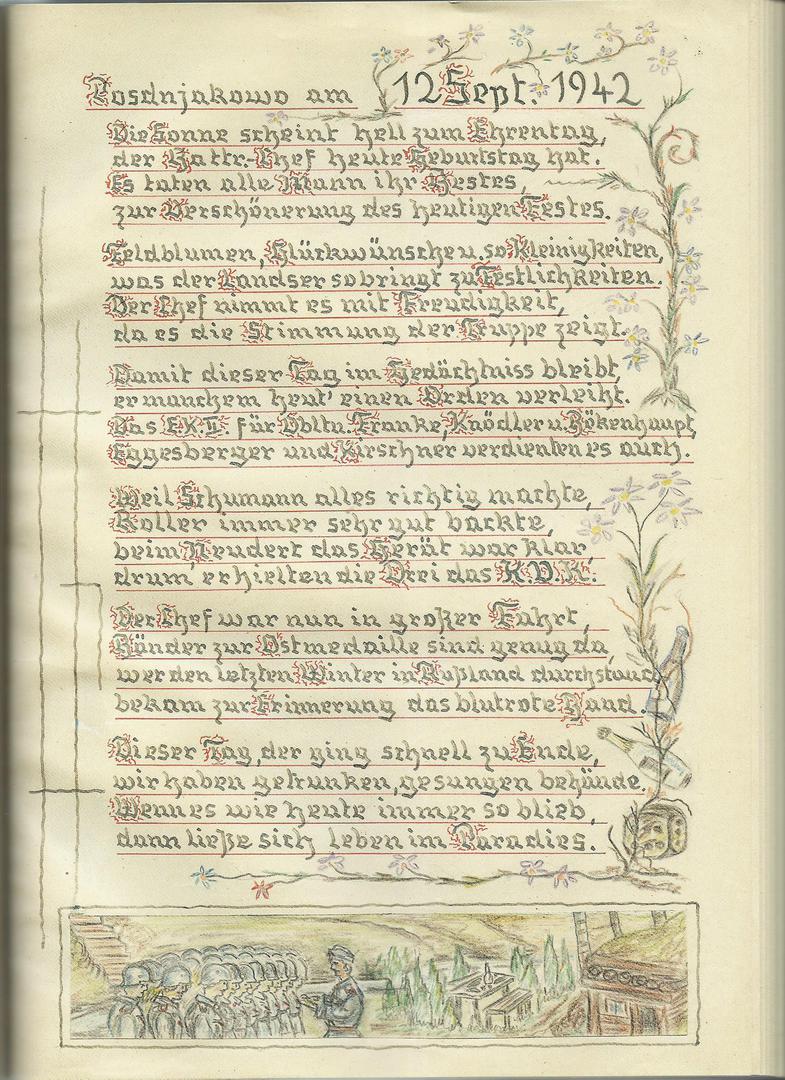 Posdnjakowo am 12 Sept. 1942
Die Sonne scheint hell zum Ehrentag,
der Battr.-Chef heute Geburtstag hat.
Es taten alle Mann ihr Bestes,
zur Verschönerung des heutigen Festes.
Feldblumen, Glückwünsche u. so Kleinigkeiten,
was der Landser so bringt zu Festlichkeiten.
Der Chef nimmt es mit Freudigkeit,
da es die Stimmung der Truppe zeigt.
Damit dieser Tag im Gedächtniss bleibt,
er manchem heut' einen Orden verleiht.
Das E.K.II. für Obltn. Franke, Knödler u. Bökenhaupt
Eggesberger und Kirschner verdienten es auch.
Weil Schumann alles richtig machte,
Koller immer sehr gut backte,
beim Neudert das Gerät war klar,
drum erhielten die Drei das K.V.K.
Der Chef war nun in großer Fahrt,
Bänder zur Ostmedaille sind genug da,
wer den letzten Winter in Rußland durchstand
bekam zur Erinnerung das blutrote Band.
Dieser Tag, der ging schnell zu Ende,
wir haben getrunken, gesungen behände.
Wenn es wie heute immer so blieb,
dann ließe sich leben im Paradies.